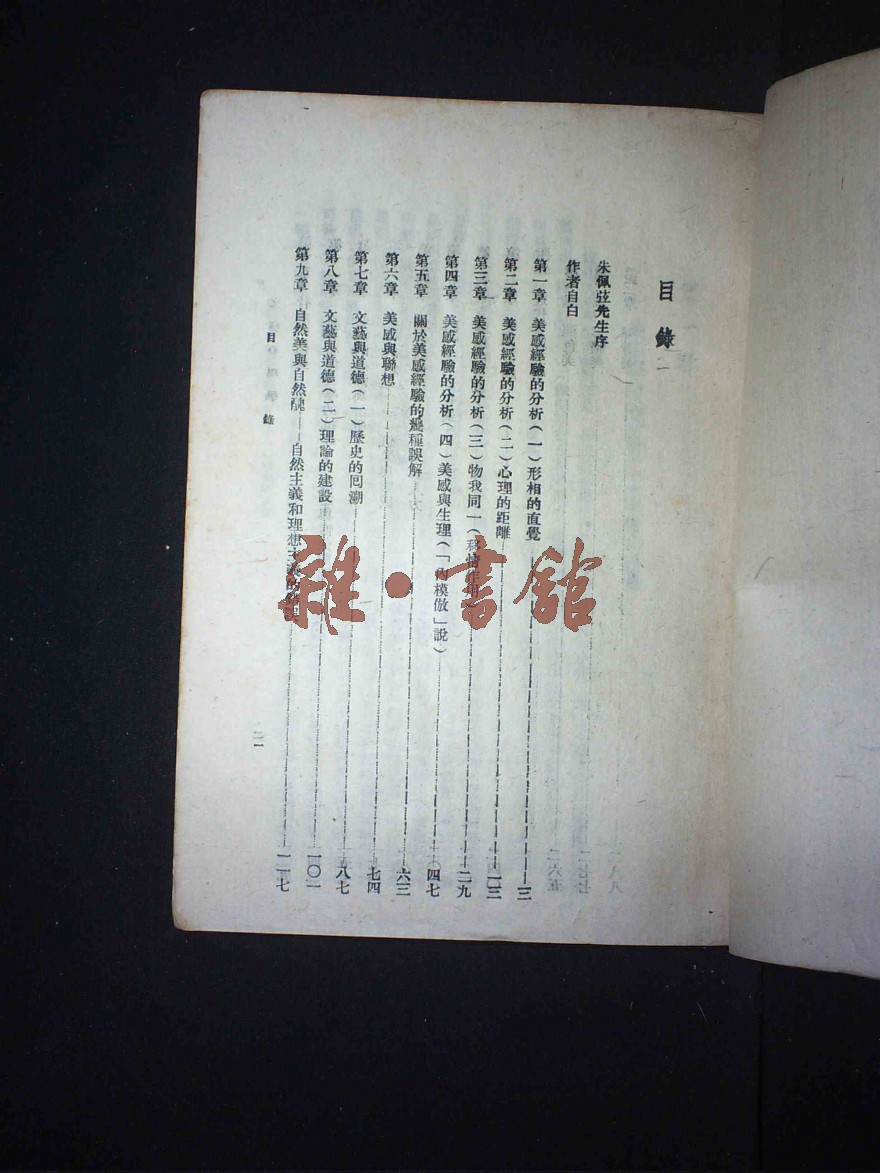 目錄
朱佩弦先生序
作者自白
第一章 美感經驗的分析(一)形相的直覺 三
第二章 美感經驗的分析(二)心理的距離 一三
第三章 美感經驗的分析(三)物我同一( 二九
第四章 美感經驗的分析(四)美感與生理(「內模倣」說) 四七
第五章 關於美感經驗的幾種誤解 六三
第六章 美感與聯想 七四
第七章 文藝與道德(一)歷史的回溯 八七
第八章 文藝與道德(二)理論的建設 一〇一
第九章 自然美與自然醜——自然主義和理想主義的
目 錄
雜·書館